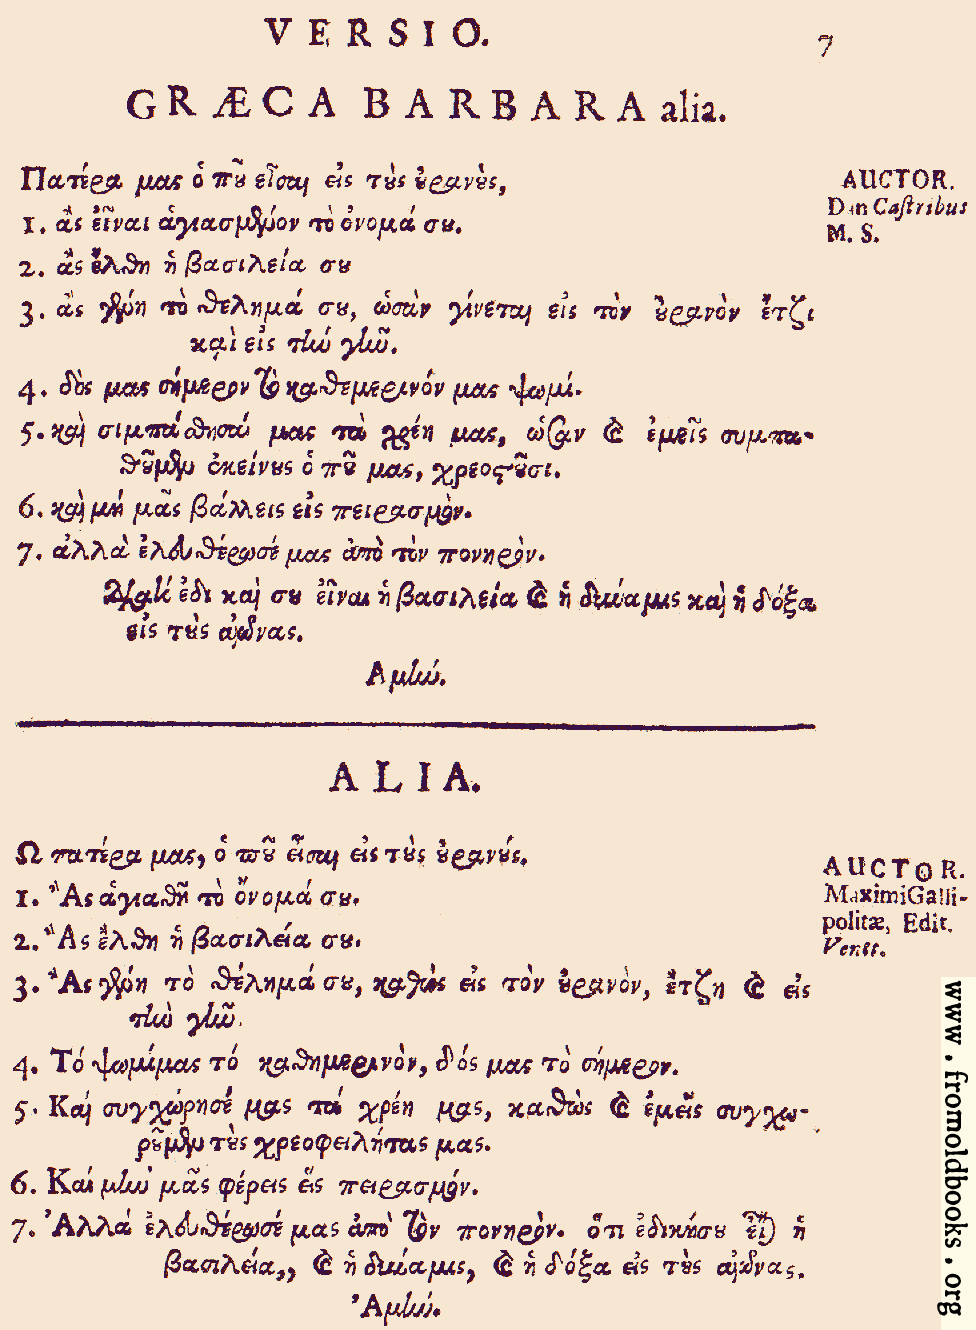 VERSIO.
7
GRÆCA BARBARA alia.
Πατέρα μας ὁ πȣ͂ εἶσαι εἰς τȣ̀ς ȣ̓ρανȣ̀ς,
AUCTOR.
Dan Castribus
M. S.
1. ἂς εἶναι ἁγιασμένον τὸ ὀνομά σȣ.
2. ἂς ἔλθη ἡ βασιλεία σȣ
3. ἂς γένη τὸ θελημά σȣ, ὡσὰν γίνεται εἰς τὸν ȣ̓ρανὸν ἔτζι
καὶ εἰς τὴν γῆν.
4. δὸς μας σήμερον τὸ καθεμερινόν μας ψωμί.
5. καὶ σιμπάθησαί μας τὰ χρέη μας, ὡσὰν & ἐμεῖς συμπα-
θȣ͂μεν ἐκείνȣς ὁ πȣ͂ μας, χρεοστȣ͂σι.
6. καὶ μὴ μᾶς βάλλεις εἰς πειρασμὸν.
7. ἀλλὰ ἐλευθέρωσέ μας ἀπὸ τὸν πονηρὸν.
ἐδι καὶ σȣ εἶναι ἡ βασιλεία & ἡ δύναμις καὶ ἡ δόξα
εἰς τȣ̀ς αἰῶνας.
Αμήν.
ALIA.
Ω πατέρα μας, ὁ πȣ͂ εἶσαι εἰς τȣ̀ς ȣ̓ρανȣ́ς.
AUCTOR.
Maximi Galli-
politæ, Edit.
Venet.
1. Ἂς ἁγιαθῆ τὸ ὄνομά σȣ.
2. Ἂς ἔλθη ἡ βασιλεία σȣ.
3. Ἂς γένη τὸ θέλημά σȣ, καθὼς εἰς τὸν ȣ̓ρανὸν, ἔτζη & εἰς
τὴν γῆν.
4. Τό ψωμίμας τό καθημερινὸν, δός μας τὸ σήμερον.
5. Καί συγχώρησέ μας τά χρέη μας, καθὼς & ἐμεῖς συγχω-
ρȣ͂μεν τȣ̀ς χρεοφειλήτας μας.
6. Καί μὴν μᾶς φέρεις εἰς πειρασμόν.
7. Ἀλλά ἐλευθέρωσέ μας ἀπὸ τὸν πονηρὸν. ὅτι ἐδικήσȣ εἶναι ἡ
βασιλεία,, & ἡ δύναμις, & ἡ δόξα εἰς τȣ̀ς αἰῶνας.
Ἀμήν.
www.fromoldbooks.org